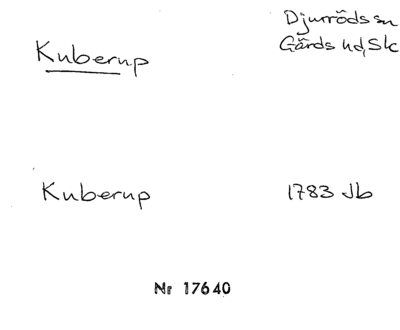 Djurröds sn
Kuberup
Gärds hd, Sk
Kuberup 1783 Jb
Nr 17640